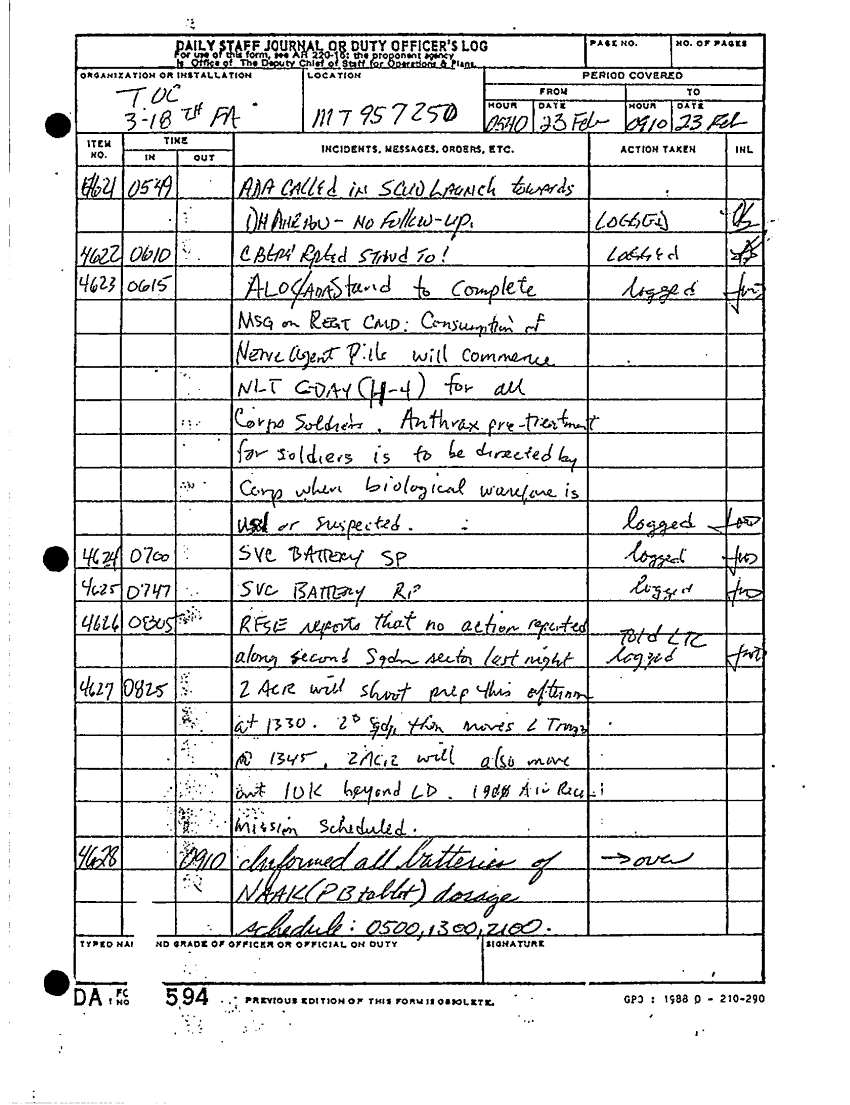 DAILY STAFF JOURNAL OR DUTY OFFICER'S LOG
For use of this form, see AR 220-15; the proponent agency
is Office of The Deputy Chief of Staff for Operations & Plans.
PAGE NO.
NO. OF PAGES
ORGANIZATION OR INSTALLATION
TOC
3-18 TH FA
LOCATION
MT 957250
PERIOD COVERED
FROM TO
HOUR DATE HOUR DATE
0540 23 Feb 0910 23 Feb
ITEM NO. TIME IN OUT INCIDENTS, MESSAGES, ORDERS, ETC. ACTION TAKEN INL
4621 0549 ADA CALLED in SCUD LAUNCH towards
- No Follow-up. LOGGED
4622 0610 Rpted Stand To! Logged
4623 0615 Stand to Complete logged
MSG on REGT CMD: Consumption of
Nerve Agent Pills will commence
NLT G-DAY (H-4) for all
Corps Soldiers. Anthrax pre-treatment
for soldiers is to be directed by
Corp when biological warefare is
used or suspected. logged
4624 0700 SVC BATTERY SP logged
4625 0747 SVC BATTERY RP logged
4626 0805 RFSE reports that no action reported Told LTC
along second Sqdn sector last night logged
4627 0825 2 ACR will shoot prep this afternoon
at 1330. 2D Sqdn then moves
@ 1345. 2ACR will also move
out 10K beyond LD. 1900 Air Recon
mission scheduled.
4628 0910 Informed all batteries of → over
NAAK (PB tablet) dosage
schedule: 0500, 1300, 2100.
TYPED NAM ND GRADE OF OFFICER OR OFFICIAL ON DUTY
SIGNATURE
DA FORM 1 NO 594 PREVIOUS EDITION OF THIS FORM IS OBSOLETE. GPO : 1988 O - 210-290